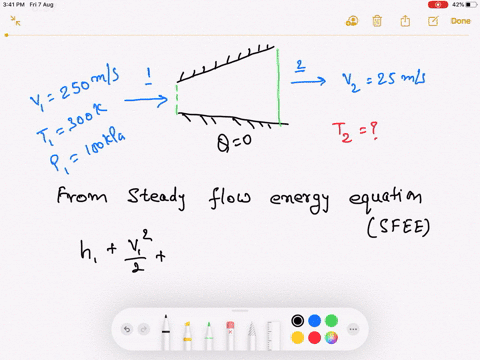 3:41 PM Fri 7 Aug
42%
Done
V₁ = 250 m/s
T₁ = 300K
P₁ = 100kPa
1
2
V₂ = 25 m/s
T₂ = ?
Q = 0
From Steady flow energy equation
(SFEE)
h₁ + V₁²/2 +